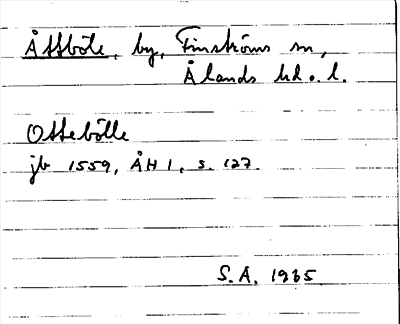 Åttböle, by, Finströms sn,
Ålands hd o. l.
Ottebölle
jb 1559, ÅH 1, s. 127.
S.A. 1935